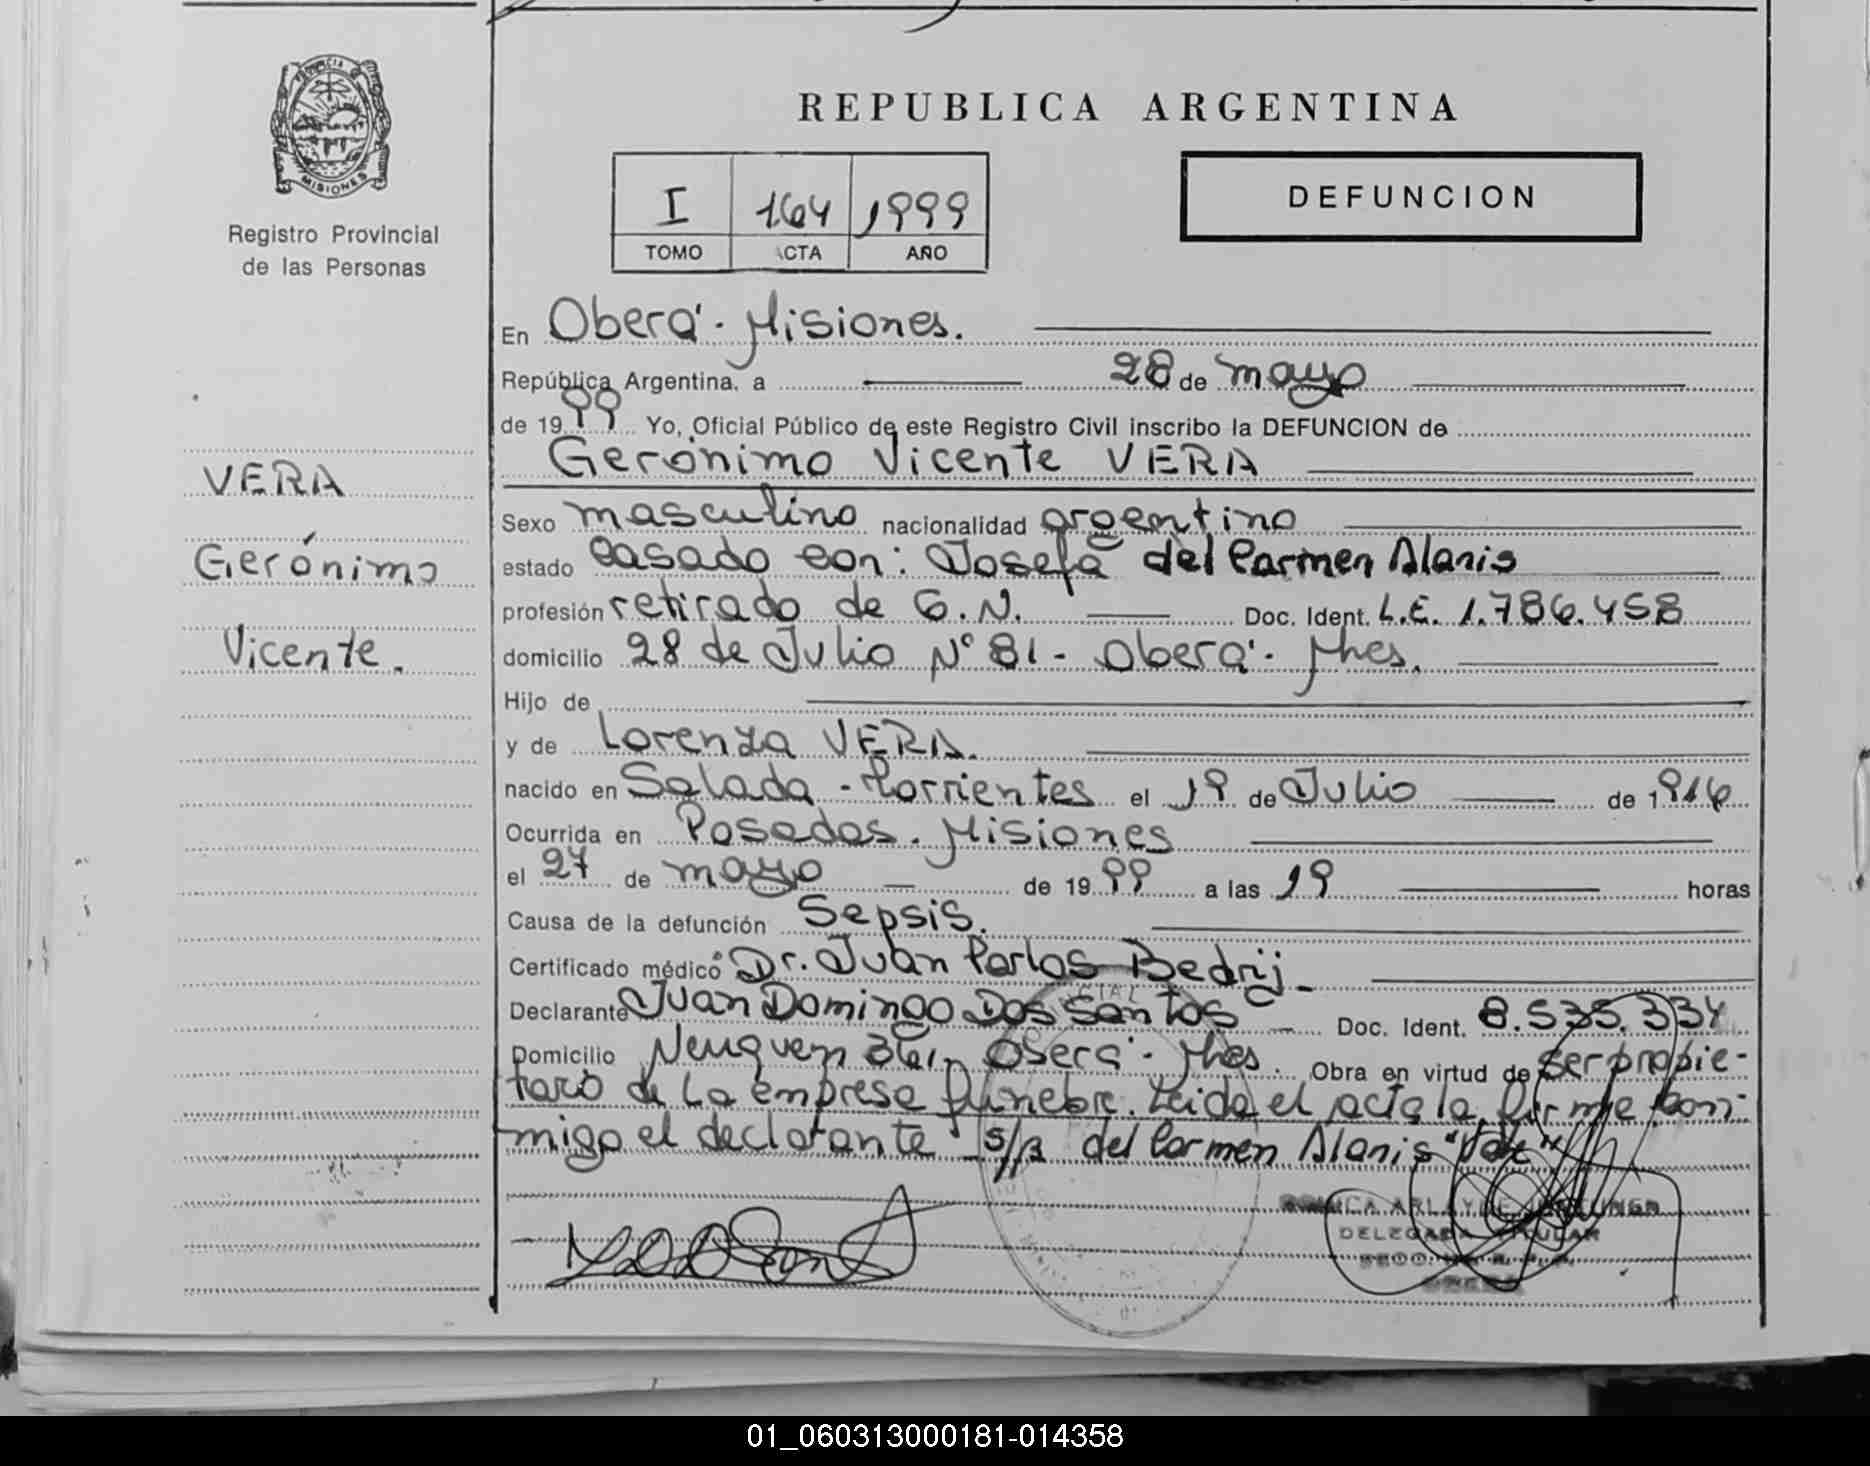 PROVINCIA DE
MISIONES
Registro Provincial
de las Personas
VERA
Gerónimo
Vicente.
REPUBLICA ARGENTINA
I 164 1999
TOMO ACTA AÑO
DEFUNCION
En Oberá - Misiones.
República Argentina, a 28 de mayo
de 1999 Yo, Oficial Público de este Registro Civil inscribo la DEFUNCION de
Gerónimo Vicente VERA
Sexo masculino nacionalidad argentino
estado casado con: Josefa del Carmen Alanis
profesión retirado de G.N. Doc. Ident. L.E. 1.786.458
domicilio 28 de Julio Nº 81 - Oberá - Mnes.
Hijo de
y de Lorenza VERA.
nacido en Salada - Corrientes el 19 de Julio de 1916
Ocurrida en Posadas. Misiones
el 27 de mayo de 1999 a las 19 horas
Causa de la defunción Sepsis.
Certificado médico Dr. Juan Carlos Bedrij
Declarante Juan Domingo Dos Santos Doc. Ident. 8.535.334
Domicilio Neuquen Oberá - Mnes. Obra en virtud de ser propie-
tario de la empresa fúnebre. Leida el acta la firma con-
migo el declarante S/R del Carmen Alanis "Vale"
DELEGADA TITULAR
01_060313000181-014358